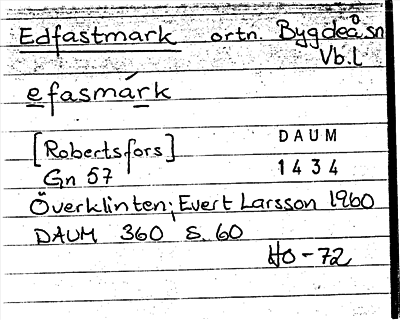 Edfastmark ortn. Bygdeå sn
Vb.l
efasmárk
[Robertsfors] DAUM
Gn 57 1434
Överklinten; Evert Larsson 1960
DAUM 360 s. 60
HO-72